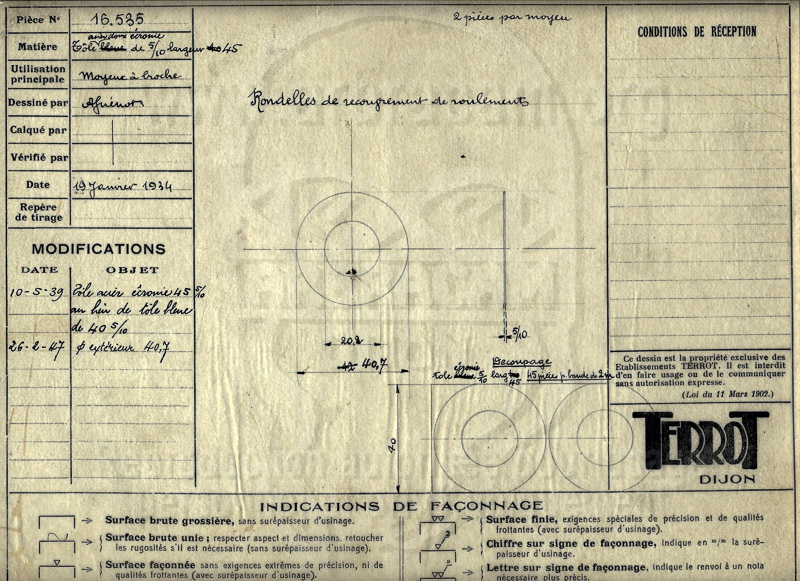 Pièce N° 16.535
2 pièces par moyeu
CONDITIONS DE RÉCEPTION
écrouie
Matière Tôle bleue de 5/10 largeur 45
Utilisation
principale Moyeux à broche
Dessiné par
Rondelles de recouvrement de roulements
Calqué par
Vérifié par
Date 19 Janvier 1934
Repère
de tirage
MODIFICATIONS
DATE OBJET
10-5-39 Tôle acier écrouie 45 5/10
au lieu de tôle bleue
de 40 5/10
26-2-47 ϕ extérieur 40,7
20,2
5/10
42 40,7
Découpage
écrouie
tole bleue 5/10 larg 45 45 pièces p. bande de 2 m
40
Ce dessin est la propriété exclusive des
Etablissements TERROT. Il est interdit
d'en faire usage ou de le communiquer
sans autorisation expresse.
(Loi du 11 Mars 1902.)
TERROT
DIJON
INDICATIONS DE FAÇONNAGE
Surface brute grossière, sans surépaisseur d'usinage.
Surface brute unie ; respecter aspect et dimensions, retoucher
les rugosités s'il est nécessaire (sans surépaisseur d'usinage).
Surface façonnée sans exigences extrêmes de précision, ni de
qualités frottantes (avec surépaisseur d'usinage).
Surface finie, exigences spéciales de précision et de qualités
frottantes (avec surépaisseur d'usinage).
Chiffre sur signe de façonnage, indique en m/m la suré-
paisseur d'usinage.
Lettre sur signe de façonnage, indique le renvoi à un nota
nécessaire plus précis.